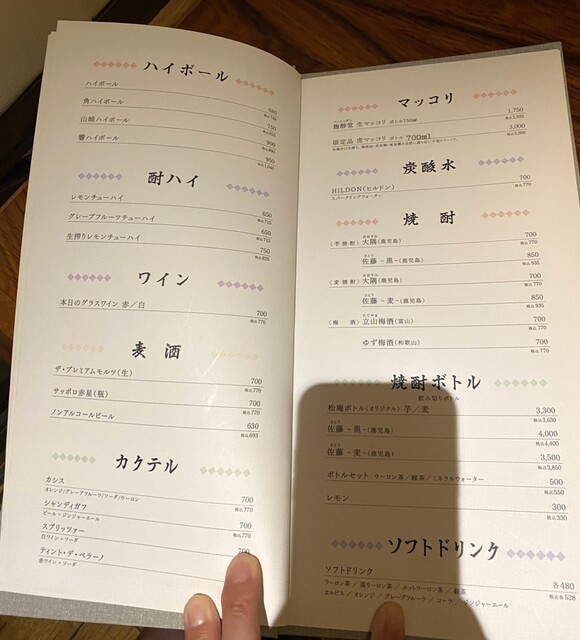 ハイボール
ハイボール 680
角ハイボール 750
山崎ハイボール 900
響ハイボール 950
酎ハイ
レモンチューハイ 650 税込715
グレープフルーツチューハイ 650 税込715
生搾りレモンチューハイ 750 税込825
ワイン
本日のグラスワイン 赤／白 700 税込770
麦酒
ザ・プレミアムモルツ(生) 700 税込770
サッポロ赤星(瓶) 700 税込770
ノンアルコールビール 630 税込693
カクテル
カシス 700 税込770
オレンジ/グレープフルーツ/ソーダ/ウーロン
シャンディガフ 700 税込770
ビール+ジンジャーエール
スプリッツァー 700
白ワイン+ソーダ
ティント・デ・ベラーノ
赤ワイン+ソーダ
マッコリ
麹醇堂 生マッコリ ボトル750ml 1,750 税込1,925
限定品 虎マッコリ ボトル 700ml 3,000 税込3,300
炭酸水
HILDON(ヒルドン) 700 税込770
スパークリングウォーター
焼酎
(芋焼酎) 大隅(鹿児島) 700 税込770
佐藤 -黒-(鹿児島) 850 税込935
(麦焼酎) 大隅(鹿児島) 700 税込770
佐藤 -麦-(鹿児島) 850 税込935
(梅酒) 立山梅酒(富山) 700 税込770
ゆず梅酒(和歌山) 700 税込770
焼酎ボトル
飲み切りボトル
松庵ボトル(オリジナル) 芋／麦 3,300 税込3,630
佐藤 -黒-(鹿児島) 4,000 税込4,400
佐藤 -麦-(鹿児島) 3,500 税込3,850
ボトルセット ウーロン茶／緑茶／ミネラルウォーター 500 税込550
レモン 300 税込330
ソフトドリンク
ソフトドリンク 各480 税込各528
ウーロン茶 ／ 黒ウーロン茶 ／ ホットウーロン茶 ／ 緑茶
カルピス ／ オレンジ ／ グレープフルーツ ／ コーラ ／ ジンジャーエール